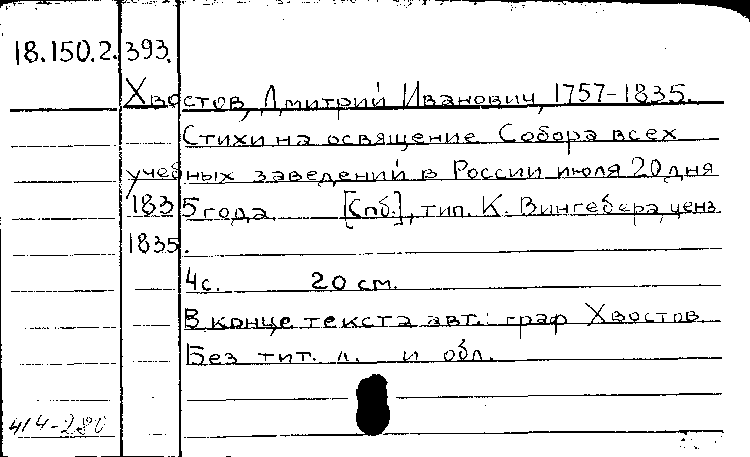 18.150.2.393.
Хвостов, Дмитрий Иванович, 1757-1835.
Стихи на освящение Собора всех
учебных заведений в России июля 20 дня
1835 года. [Спб.], тип. К. Вингебера, ценз.
1835.
4с. 20 см.
В конце текста авт.: граф Хвостов.
Без тит. л. и обл.
414-280